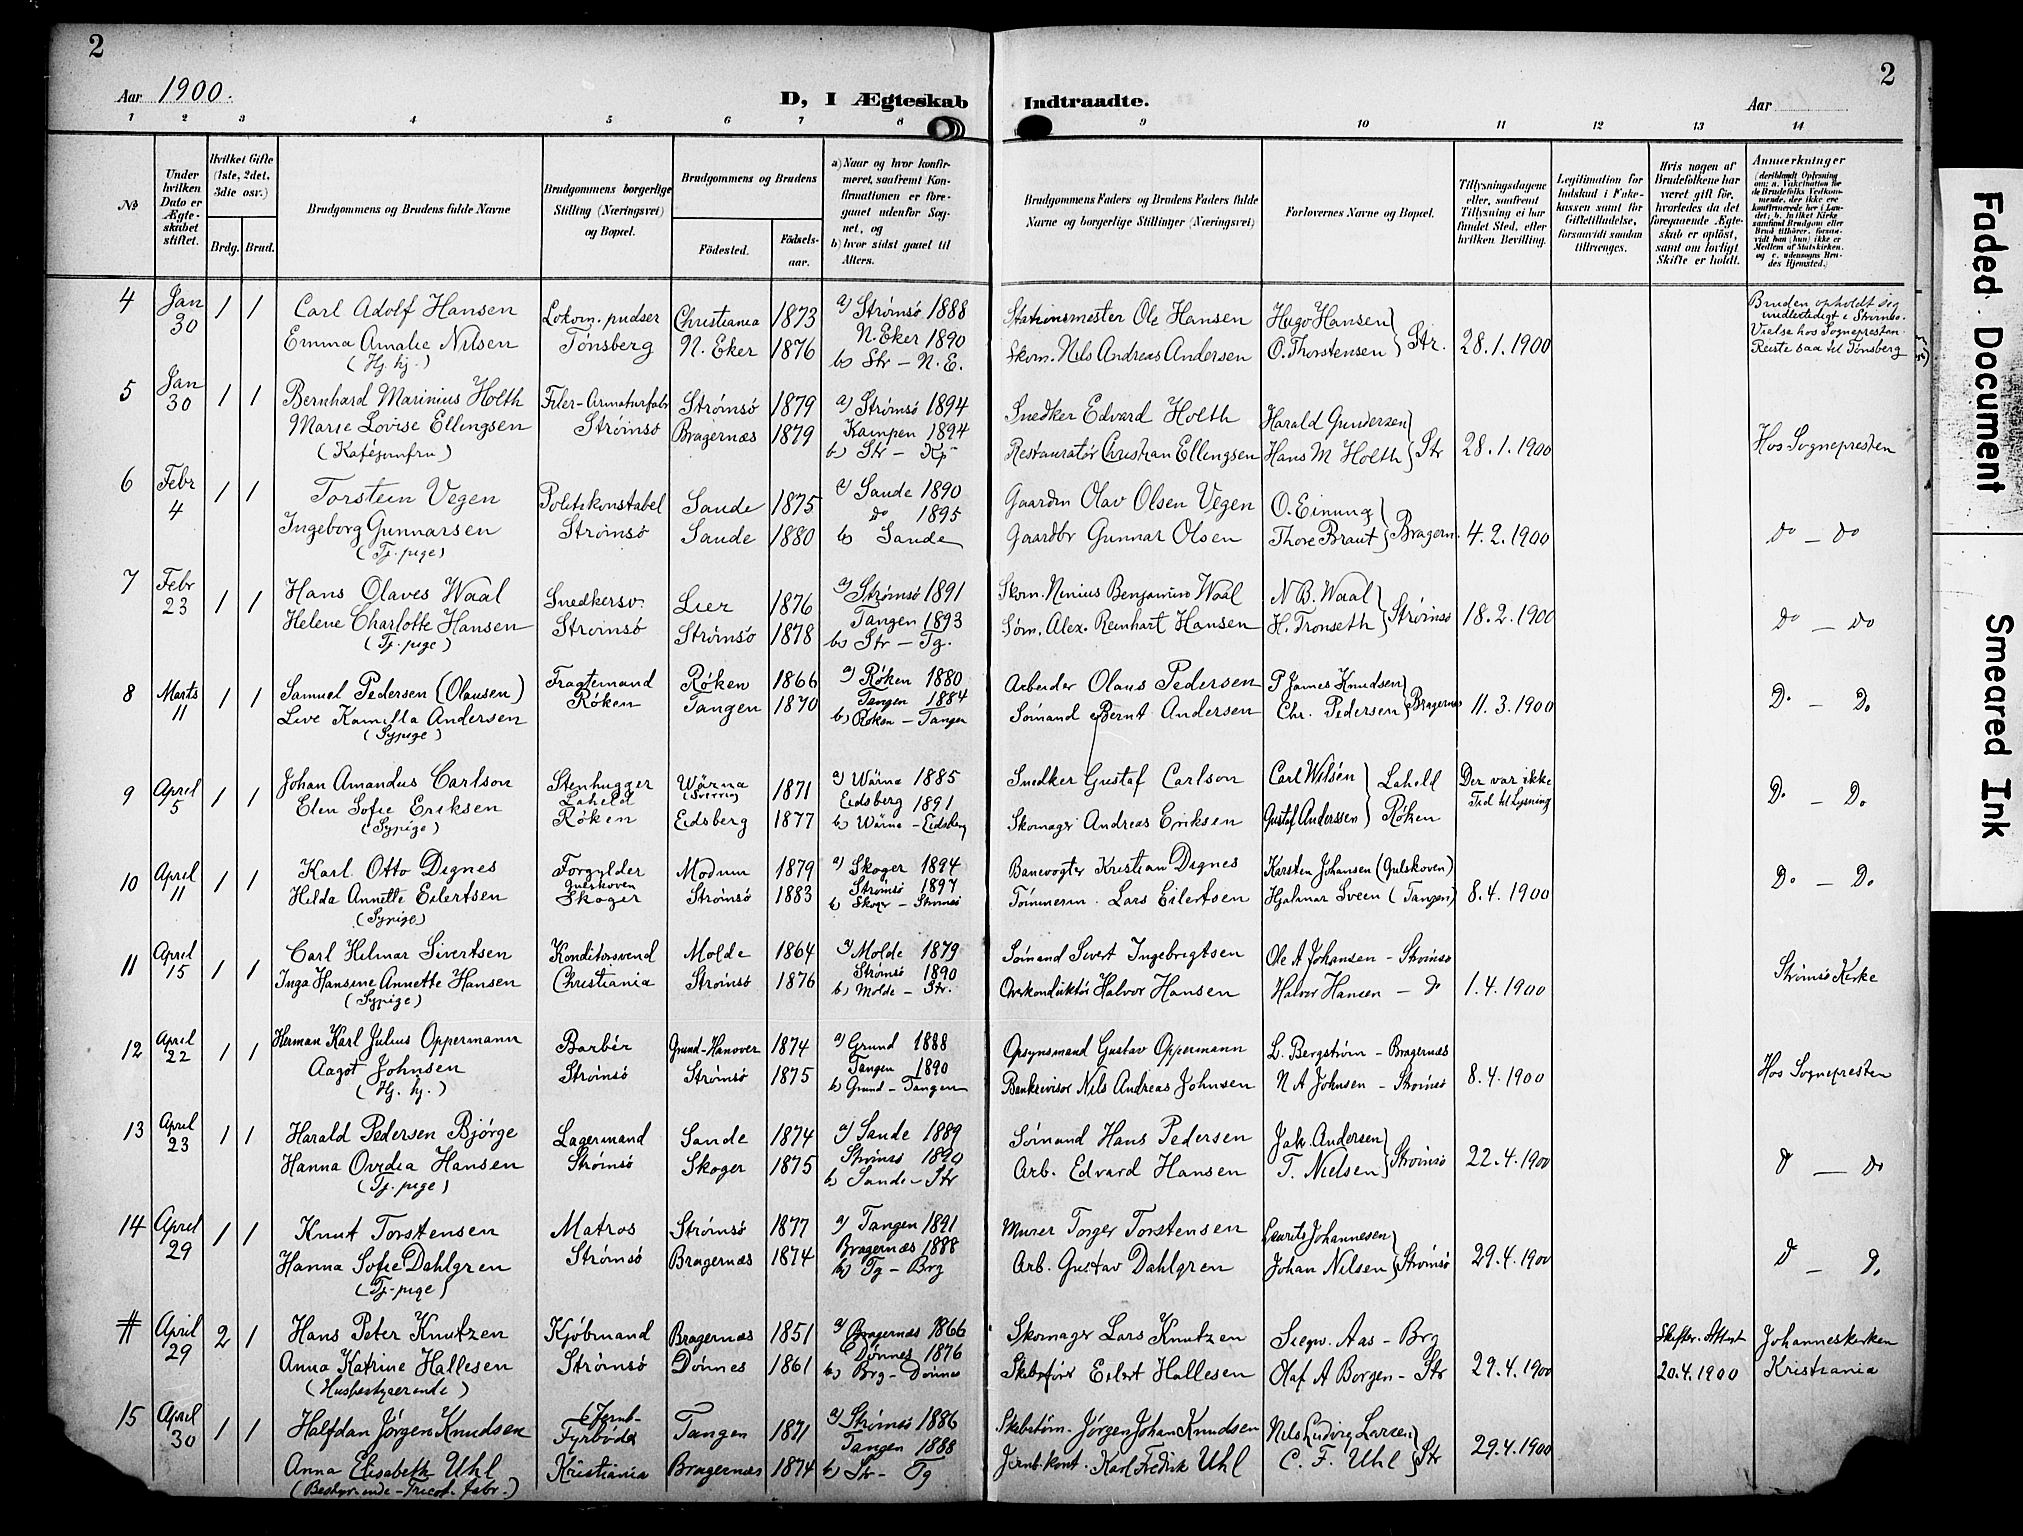 2
Aar 1900.
D, I Ægteskab Indtraadte.
Aar
2
1 2 3 4 5 6 7 8 9 10 11 12 13 14
№
Under hvilken Dato er Ægteskabet stiftet.
Hvilket Gifte (1ste, 2det, 3die osv.)
Brdg. Brud.
Brudgommens og Brudens fulde Navne
Brudgommens borgerlige Stilling (Næringsvei) og Bopæl.
Brudgommens og Brudens
Fødested.
Fødselsaar.
a) Naar og hvor konfirmeret, saafremt Konfirmationen er foregaaet udenfor Sognet, og
b) hvor sidst gaaet til Alters.
Brudgommens Faders og Brudens Faders fulde Navne og borgerlige Stillinger (Næringsvei)
Forlovernes Navne og Bopæl.
Tillysningsdagene eller, saafremt Tillysning ei har fundet Sted, efter hvilken Bevilling.
Legitimation for Indskud i Enkekassen samt for Giftetilladelse, forsaavidt saadan tiltrænges.
Hvis nogen af Brudefolkene har været gift før, hvorledes da det foregaaende Ægteskab er opløst, samt om lovligt Skifte er holdt.
Anmerkninger (deriblandt Oplysning om: a. Vakcination for de Brudefolks Vedkommende, der ikke ere konfirmerede her i Landet; b. hvilket Kirkesamfund Brudgom eller Brud tilhører, forsaavidt han (hun) ikke er Medlem af Statskirken, og c. udensogns Brudes Hjemsted.)
4 Jan 30 1 1 Carl Adolf Hansen Lokom. pudser Christiania 1873 a) Strømsø 1888 Stationsmester Ole Hansen Hugo Hansen Bruden opholdt sig
N. Eker 1890 midlertidigt i Strømsø.
Emma Amalie Nilsen Tønsberg N. Eker 1876 b) Str - N. E. Skom. Nils Andreas Andersen O. Thorstensen Str. 28.1.1900 Vielse hos Sognepresten.
(Hj. hj.) Reiste saa til Tønsberg
5 Jan 30 1 1 Bernhard Marinius Holth Filer-Armaturfabr Strømsø 1879 a) Strømsø 1894 Snedker Edvard Holth Harald Gundersen
Marie Lovise Ellingsen Strømsø Bragernæs 1879 Kampen 1894
(Kaféjomfru) b) Str - Kp Restauratør Christian Ellingsen Hans M Holth Str 28.1.1900 Hos Sognepresten
6 Febr 4 1 1 Torstein Vegen Politikonstabel Sande 1875 a) Sande 1890 Gaardm Olav Olsen Vegen O. Einung
do 1895
Ingeborg Gunnarsen Strømsø Sande 1880 b) Sande Gaardbr Gunnar Olsen Thore Braut Bragern. 4.2.1900 do - do
(Tj. pige)
7 Febr 23 1 1 Hans Olaves Waal Snedkersv. Lier 1876 a) Strømsø 1891 Skom. Ninius Benjamin Waal N B. Waal
Tangen 1893
Helene Charlotte Hansen Strømsø Strømsø 1878 b) Str - Tg. Søm. Alex. Reinhart Hansen H. Tronseth Strømsø 18.2.1900 do - do
(Tj. pige)
8 Marts 11 1 1 Samuel Pedersen (Olausen) Fragtemand Røken 1866 a) Røken 1880 Arbeider Olaus Pedersen P James Knudsen
Tangen 1884
Live Kamilla Andersen Røken Tangen 1870 b) Røken - Tangen Sømand Bernt Andersen Chr. Pedersen Bragernes 11.3.1900 Do - Do
(Sypige)
9 April 5 1 1 Johan Amandus Carlson Stenhugger Wärna (Sverrig) 1871 a) Wärna 1885 Snedker Gustaf Carlson Carl Wilsén Laheld Der var ikke
Laheld Eidsberg 1891 Tid til Lysning
Elen Sofie Eriksen Røken Eidsberg 1877 b) Wärna - Eidsberg Skomager Andreas Eriksen Gustaf Anderssen Røken Do - Do
(Sypige)
10 April 11 1 1 Karl Otto Dignes Forgylder Modum 1879 a) Skoger 1894 Banevogter Kristian Dignes Karsten Johansen (Gulskoven)
Gulskoven Strømsø 1897
Hilda Annette Eilertsen Skoger Strømsø 1883 b) Skoger - Strømsø Tømmerm. Lars Eilertsen Hjalmar Sveen (Tangen) 8.4.1900 Do - Do
(Sypige)
11 April 15 1 1 Carl Hilmar Sivertsen Konditorsvend Molde 1864 a) Molde 1879 Sømand Sivert Ingebregtsen Ole A Johansen - Strømsø
Strømsø 1890
Inga Hansine Annette Hansen Christiania Strømsø 1876 b) Molde - Str. Overkonduktør Halvor Hansen Halvor Hansen - do 1.4.1900 Strømsø Kirke
(Sypige)
12 April 22 1 1 Herman Karl Julius Oppermann Barbér Grund-Hanover 1874 a) Grund 1888 Opsynsmand Gustav Oppermann L. Bergstrøm - Bragernæs
Tangen 1890
Aagot Johnsen Strømsø Strømsø 1875 b) Grund - Tangen Bankrevisor Nils Andreas Johnsen N A Johnsen - Strømsø 8.4.1900 Hos Sognepresten
(Hj. hj.)
13 April 23 1 1 Harald Pedersen Bjørge Lagermand Sande 1874 a) Sande 1889 Sømand Hans Pedersen Jak. Andersen
Strømsø 1890
Hanna Ovedia Hansen Strømsø Skoger 1875 b) Sande - Str Arb. Edvard Hansen T. Nielsen Strømsø 22.4.1900 do - do
(Tj. pige)
14 April 29 1 1 Knut Torstensen Matros Strømsø 1877 a) Tangen 1891 Murer Torger Torstensen Laurits Johannesen
Bragernæs 1888
Hanna Sofie Dahlgren Strømsø Bragernæs 1874 b) Tg - Brg Arb. Gustav Dahlgren Johan Nilsen Strømsø 29.4.1900 do - do
(Tj. pige)
# April 29 2 1 Hans Peter Knutzen Kjøbmand Bragernæs 1851 a) Bragernæs 1866 Skomager Lars Knutzen Siegw. Aas - Brg Skifter. Attest Johanneskirken
Dønnes 1876
Anna Katrine Hallesen Strømsø Dønnes 1861 b) Brg - Dønnes Skibsfører Eilert Hallesen Olaf A Borgen - Str 29.4.1900 20.4.1900 Kristiania
(Husbestyrerinde)
15 April 30 1 1 Halfdan Jørgen Knudsen (Jernb- Tangen 1871 a) Strømsø 1886 Skibstøm. Jørgen Johan Knudsen Nils Ludvig Larsen
Fyrbøder Tangen 1888
Anna Elisabeth Uhl Kristiania Bragernæs 1874 b) Str - Tg Jernb.kont. Karl Fredrik Uhl C. F. Uhl Str 29.4.1900
(Bestyrerinde - Tricot. fabr.)
Faded Document
Smeared Ink